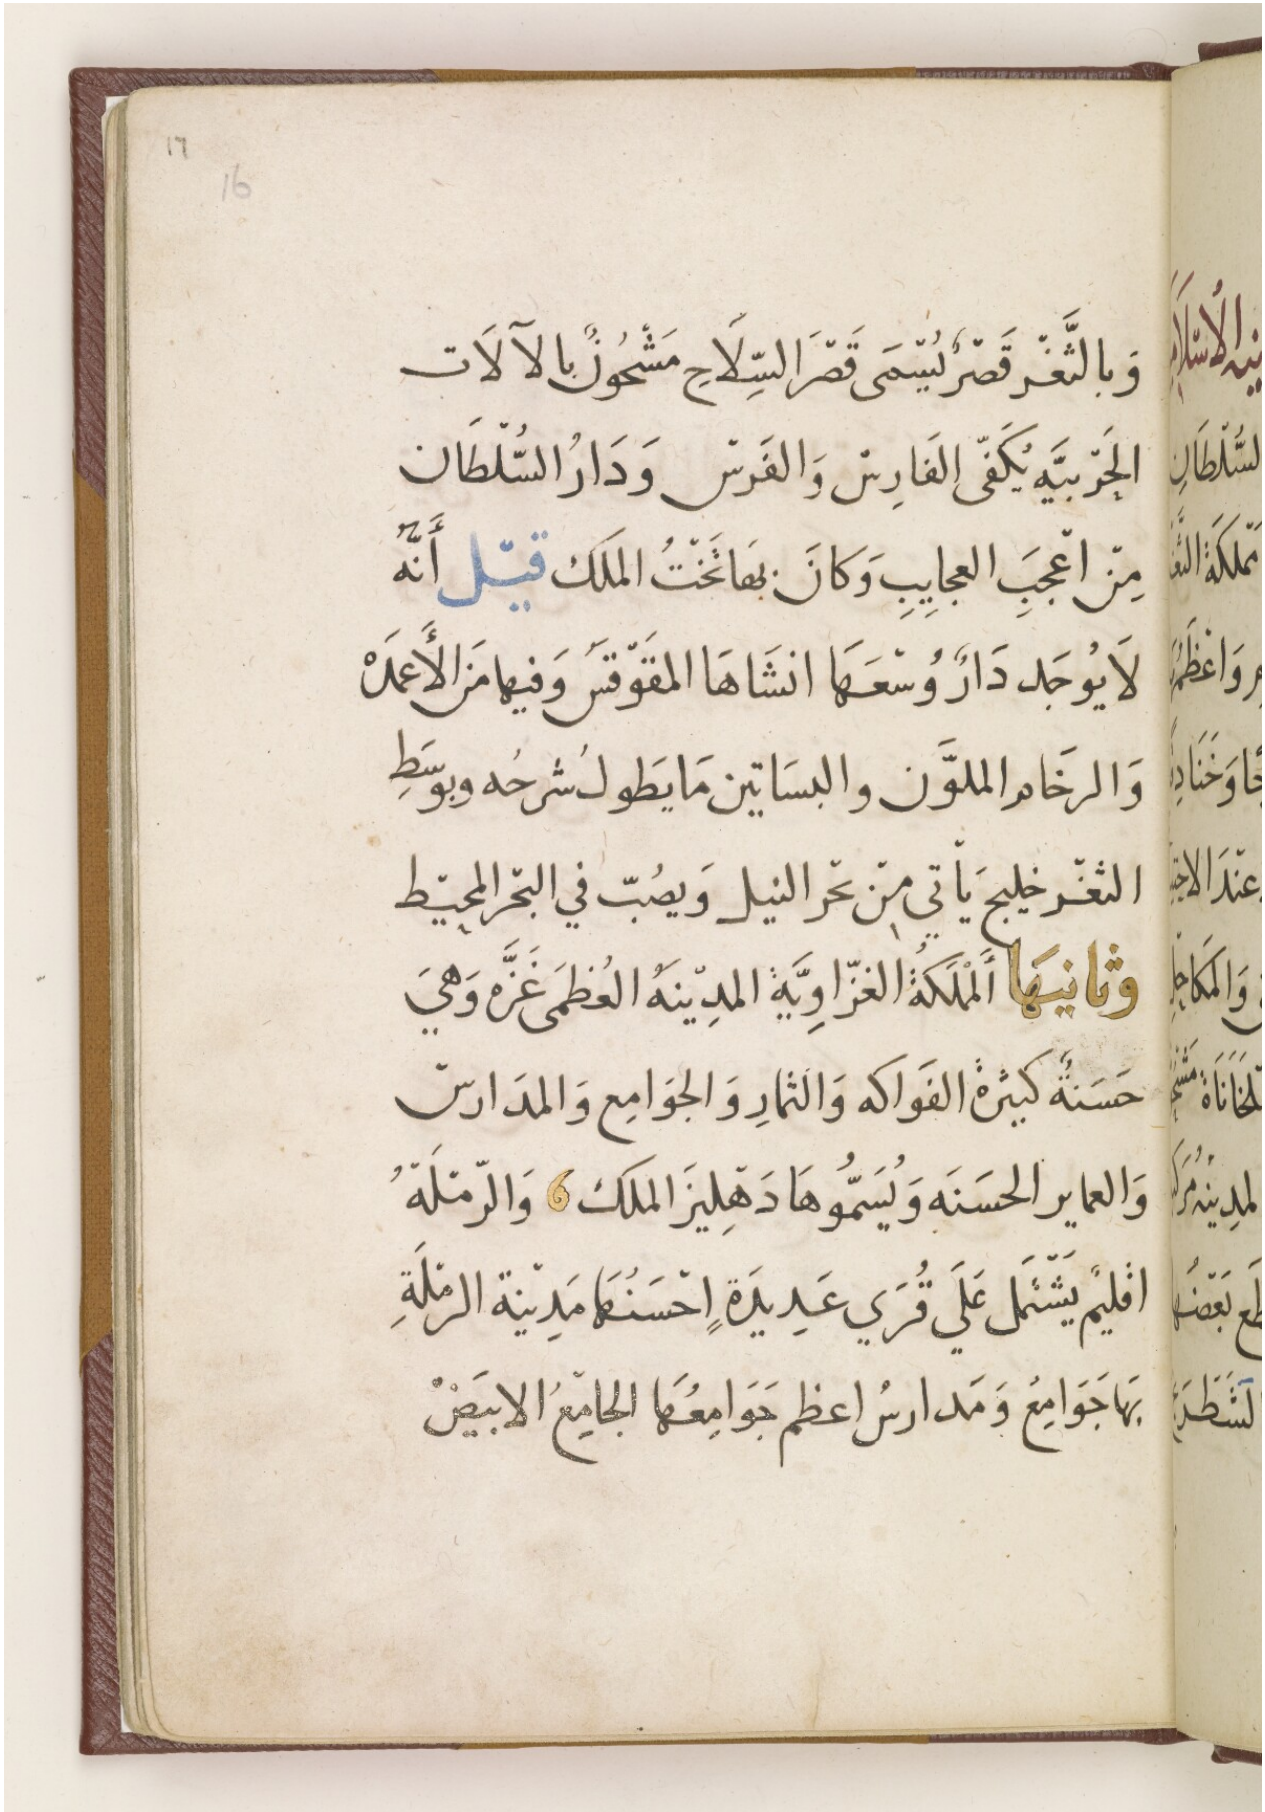 ١٦
16
وَبالثَّغْر قَصْرٌ يُسْمَى قَصْرَ السِّلَاحِ مَشْحُونٌ بالآلَات
الحَرْبيَّه يُكَفّى الفَارِسْ وَالفَرسْ وَدَارُ السُّلْطَان
مِنْ اعْجَبِ العجايبِ وَكَانَ بهَا تَخْتُ المَلَك قيْل أَنَّهُ
لَا يُوجَد دَارٌ وُسْعَهَا انشَاهَا المقَوْقسُ وَفيها مَن الأَعمدَهْ
وَالرخَام الملوَّن والبسَاتين مَا يَطولُ شرحُه وبوسَطِ
الثغْر خليج يَأتي منْ بَحْر النيل وَيصُبّ في البَحْر المحِيْط
وثانيهَا أَلمْلَكَةُ الغزّاوِيَّة المدِيْنهُ العُظمَى غَزَّه وَهيَ
حَسَنةٌ كثيرَةُ الفَوَاكه وَالثمارِ وَالجوَامِع وَالمدَارسْ
وَالعماير الحسَنَه وَيُسَمُّوهَا دَهْلِيزَ الملك وَالرّمْلَةُ
اقليمٌ يَشْتَمَل عَلَي قُرَي عَدِيدَةٍ احْسَنُهَا مَدِيْنة الرمْلَةِ
بهَا جَوَامِعُ وَمَدارسُ اعظم جَوَامِعُهَا الجامِعُ الابيَضُ